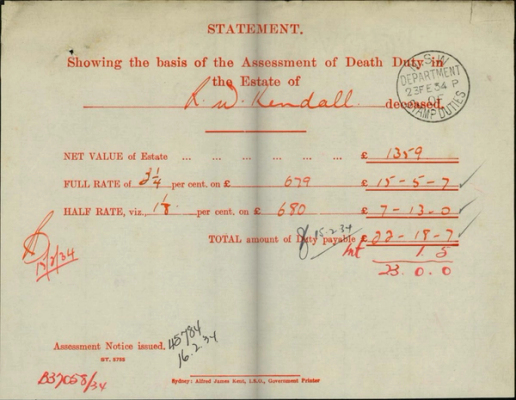 STATEMENT.
Showing the basis of the Assessment of Death Duty in
the Estate of
R. W. Kendall deceased.
N.S.W. DEPARTMENT OF STAMP DUTIES
23 FE 34 P
NET VALUE of Estate ... ... ... ... ... ... £ 1359
FULL RATE of 2 1/4 per cent. on £ 679 £ 15-5-7
HALF RATE, viz., 1 1/8 per cent. on £ 680 £ 7-13-0
TOTAL amount of Duty payable £ 22-18-7
15-2-34
Int 1 5
23.0.0
15/2/34
Assessment Notice issued. 45784
16.2.34
B37058/34
Sydney: Alfred James Kent, I.S.O., Government Printer